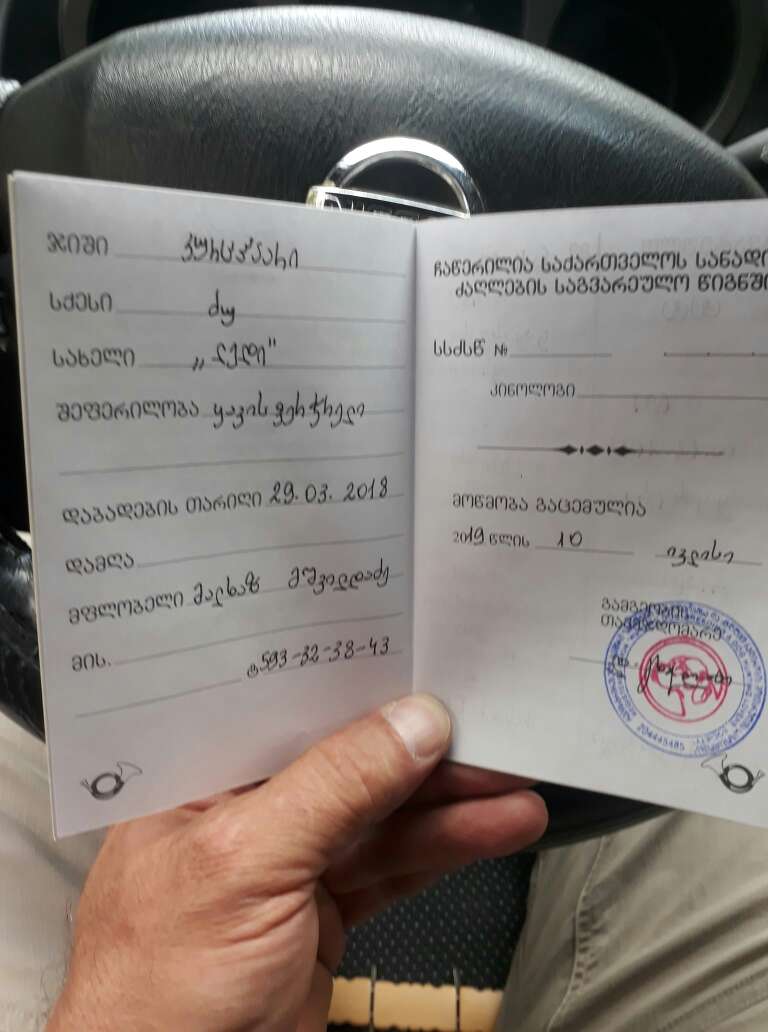 ჯიში კურცჰაარი
სქესი ძუ
სახელი „ლედი"
შეფერილობა ყავისფერჭრელი
დაბადების თარიღი 29.03.2018
დამღა
მფლობელი მალხაზ მშვილდაძე
მის.
593-32-38-43
ჩაწერილია საქართველოს სანადი
ძაღლების საგვარეულო წიგნში
სსძსწ №
კინოლოგი
მოწმობა გაცემულია
2019 წლის 10 ივლისი
გამგეობის
თავმჯდომარე